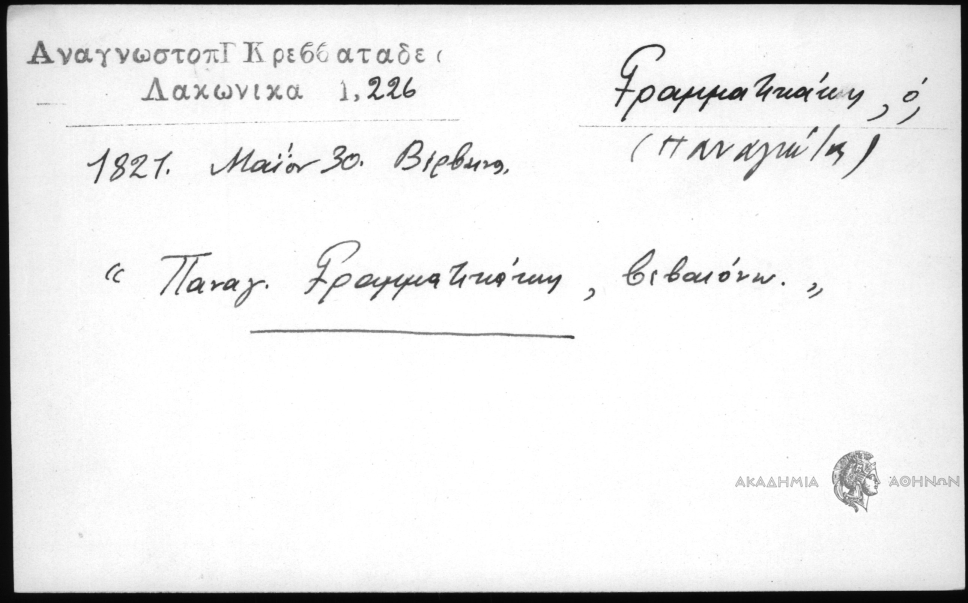 ΑναγνωστοπΓ Κρεββαταδε
Λακωνικα 1,226
Γραμματικάκης, ὁ,
(Παναγιώτης)
1821. Μαΐου 30. Βέρβαινα.
“ Παναγ. Γραμματικάκης, βεβαιόνω. „
ΑΚΑΔΗΜΙΑ ΑΘΗΝΩΝ